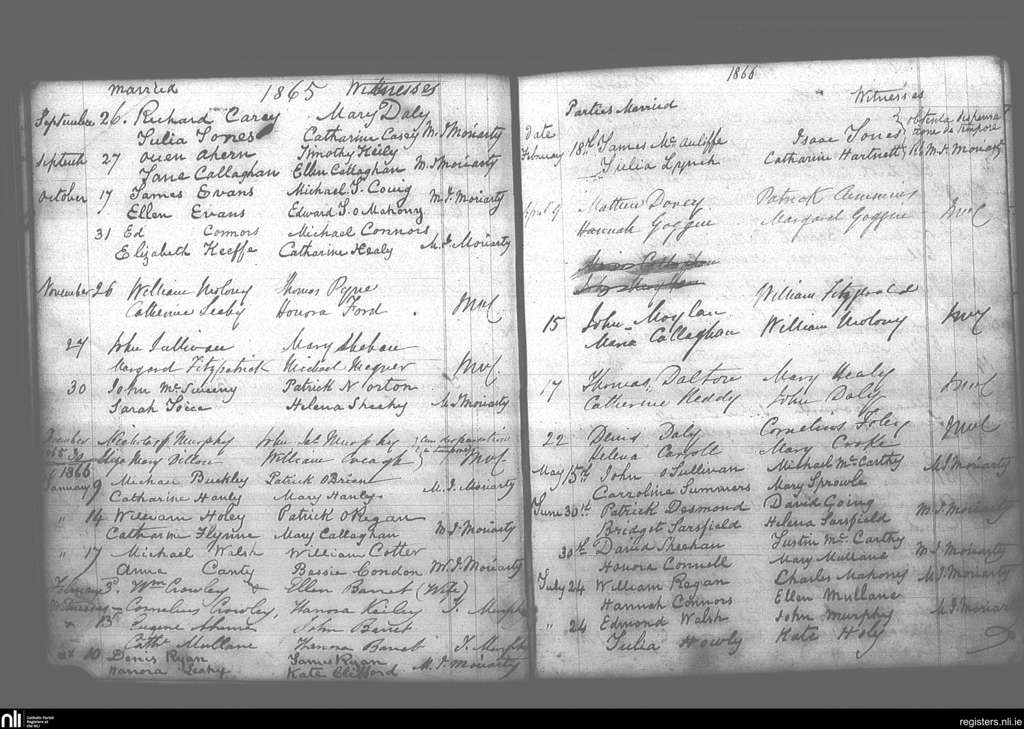 Married 1865 Witnesses
September 26. Richard Carey Mary Daly
Julia Jones Catharine Casey M. J Moriarty
Septemb 27 Owen Ahern Timothy Keily
Jane Callaghan Ellen Callaghan M. J Moriarty
October 17 James Evans Michael J.
Ellen Evans Edward J. O Mahony M. J. Moriarty
31 Ed Connors Michael Connors
Elizabeth Keeffe Catharine Healy M. J. Moriarty
November 26 William Molony Thomas Pyne
Catherine Leahy Honora Ford
27 John Sullivan Mary Sheehan
Margaret Fitzpatrick Michael
30 John Mc Sweeny Patrick Norton
Sarah Helena Sheehy M. J Moriarty
December Nicholas Murphy John Murphy
1865 30 Mary Dillon William Creagh
1866
January 9 Michael Buckley Patrick O Brien
Catharine Hanley Mary Hanley M. J. Moriarty
" 14 William Holey Patrick O Regan
Catharine Flynne Mary Callaghan M. J. Moriarty
" 17 Michael Welsh William Cotter
Anne Canty Bessie Condon M. J. Moriarty
February 3. Wm Crowley & Ellen Barret (Wife)
Witnesses Cornelius Crowley, Hanora Keiley J. Murphy
" 13th Eugene Ahearne John Barret
Cathe Mullane Hanora Barret J. Murphy
10 Denis Ryan James Ryan
Hanora Leahy Kate Clifford M. J. Moriarty
1866
Parties Married Witnesses
Date
February 18th James Mc Auliffe Isaac Jones obtenta dispensa
Julia Lynch Catharine Hartnett tione de tempore M. J. Moriarty
April 9 Mathew Dorcey Patrick Clemens
Hannah Goggin Margaret Goggin
15 John Moylan William Fitzgerald
Maria Callaghan William Molony
17 Thomas Dalton Mary Healy
Catherine Reddy John Daly
22 David Daly Cornelius Foley
Helena Carroll Mary Cooke
May 15th John O Sullivan Michael Mc Carthy M J Moriarty
Carrolina Summers Mary Sprowle
June 30th Patrick Desmond David Going M. J Moriarty
Bridget Sarsfield Helena Sarsfield
30th David Sheehan Justin Mc. Carthy
Honora Connell Mary Mullane M. J Moriarty
July 24 William Ragan Charles Mahony M. J Moriarty
Hannah Connors Ellen Mullane
" 24 Edmond Walsh John Murphy M. J Moriar
Julia Howly Kate Holy
nli Catholic Parish Registers at the NLI
registers.nli.ie